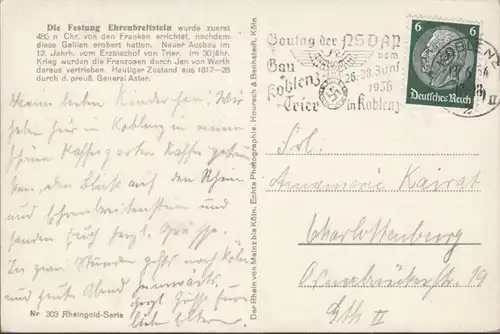 Die Festung Ehrenbreitstein wurde zuerst
486 n Chr. von den Franken errichtet, nachdem
diese Gallien erobert hatten. Neuer Ausbau im
12. Jahrh. vom Erzbischof von Trier. Im 30 jähr.
Krieg wurden die Franzosen durch Jan von Werth
daraus vertrieben. Heutiger Zustand aus 1817—28
durch d. preuß. General Aster.
Gautag der NSDAP
vom
Gau
Koblenz
26.-28. Juni
1936
Trier
in Koblenz
KOBLENZ
6 6
Deutsches Reich
lieben Kinderchen! Wir
haben hier in Koblenz in einem
schönen Kaffeegarten Kaffee getrun-
ken, den Blick auf den Rhein
und Ehrenbreitenstein und
senden Euch herzl. Grüße.
In zwei Stunden gehts nach Köln
und heute Abend heimwärts.
Herzl. Grüße Eure
lieben Eltern.
Frl.
Annemarie Kairat
Charlottenburg
Osnabrückerstr. 19
Gth II
Nr 303 Rheingold-Serie
Der Rhein von Mainz bis Köln. Echte Photographie. Hoursch & Bechstedt, Köln